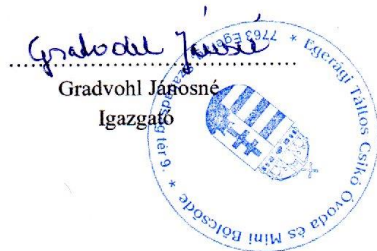 Gradvohl Jánosné
Gradvohl Jánosné
Igazgató
Egerági Táltos Csikó Óvoda és Mini Bölcsőde * 7763 Egerág, Szabadság tér 6. *